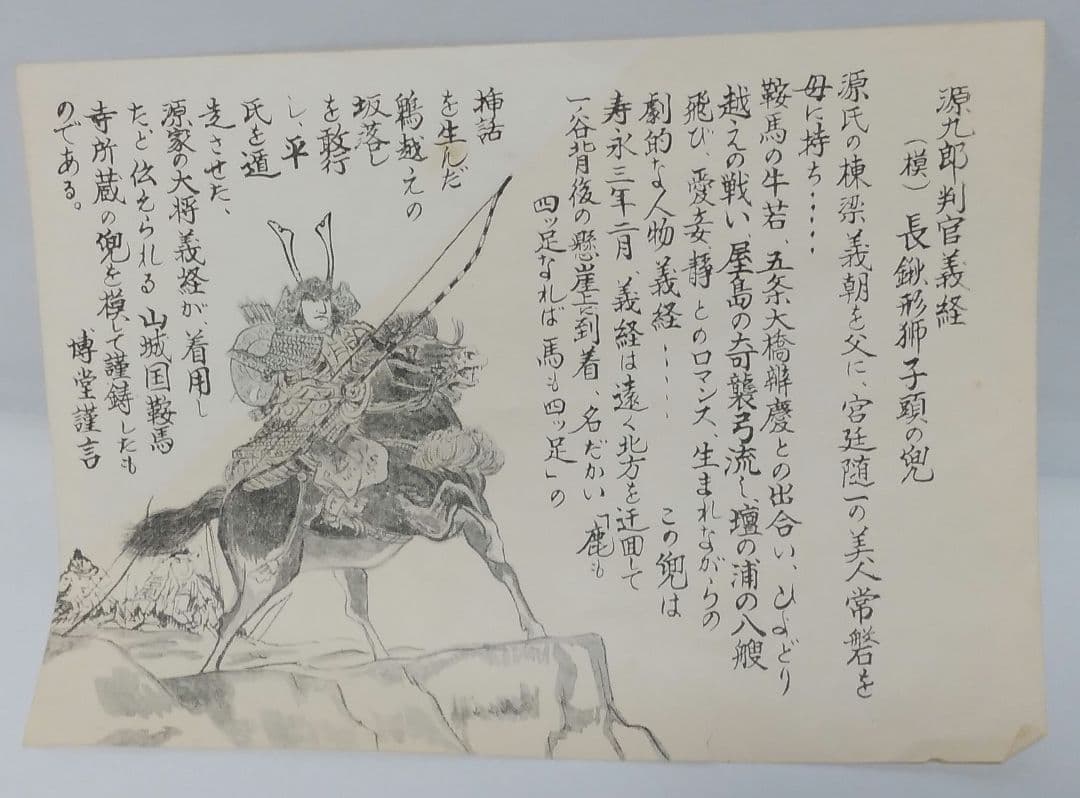 源九郎判官義経
(模) 長鍬形獅子頭の兜
源氏の棟梁義朝を父に、宮廷随一の美人常磐を
母に持ち・・・・・
鞍馬の牛若、五条大橋辨慶との出合い、ひよどり
越えの戦い、屋島の奇襲弓流し、壇の浦の八艘
飛び、愛妾静とのロマンス、生まれながらの
劇的な人物義経・・・・・ この兜は
寿永三年二月、義経は遠く北方を迂回して
一ノ谷背後の懸崖上に到着、名だかい「鹿も
四ッ足なれば馬も四ッ足」の
挿話
を生んだ
鵯越えの
坂落し
を敢行
し、平
氏を遁
走させた、
源家の大将義経が着用し
たと伝えられる山城国鞍馬
寺所蔵の兜を模して謹鋳したも
のである。
博堂謹言